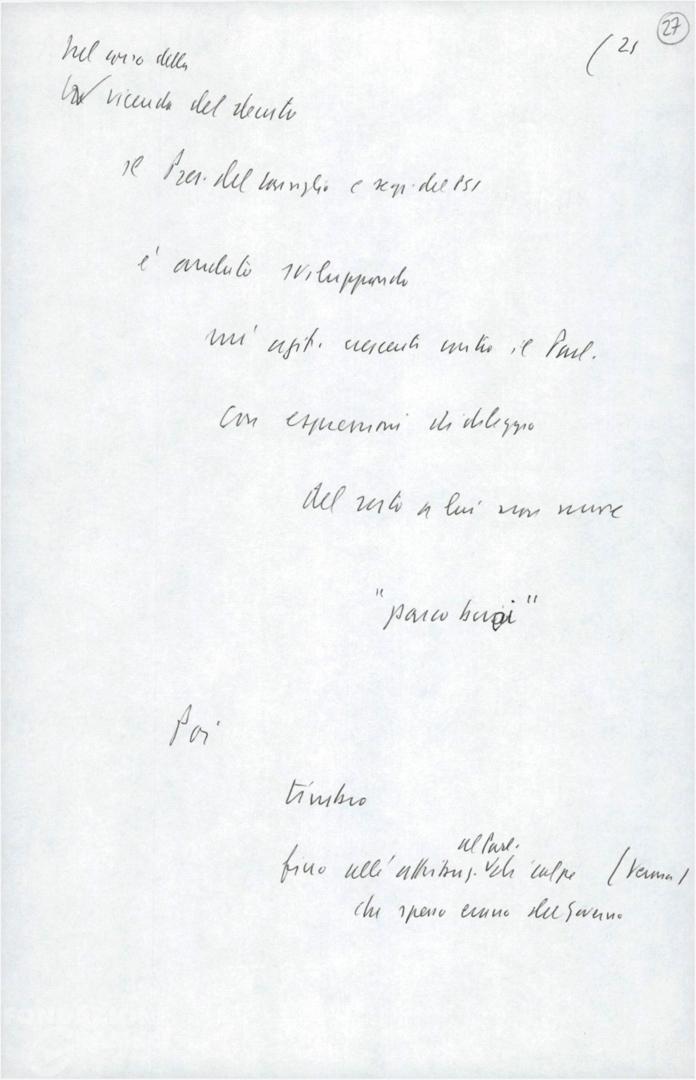 27
( 21
Nel corso della
vicenda del decreto
il Pres. del Consiglio e segr. del PSI
è andato sviluppando
un' agit. crescente contro il Parl.
con espressioni di dileggio
del resto a lui non nuove
"parco buoi"
Poi
timbro
al Parl.
fino all' attribuz. di colpe
che spesso erano del Governo